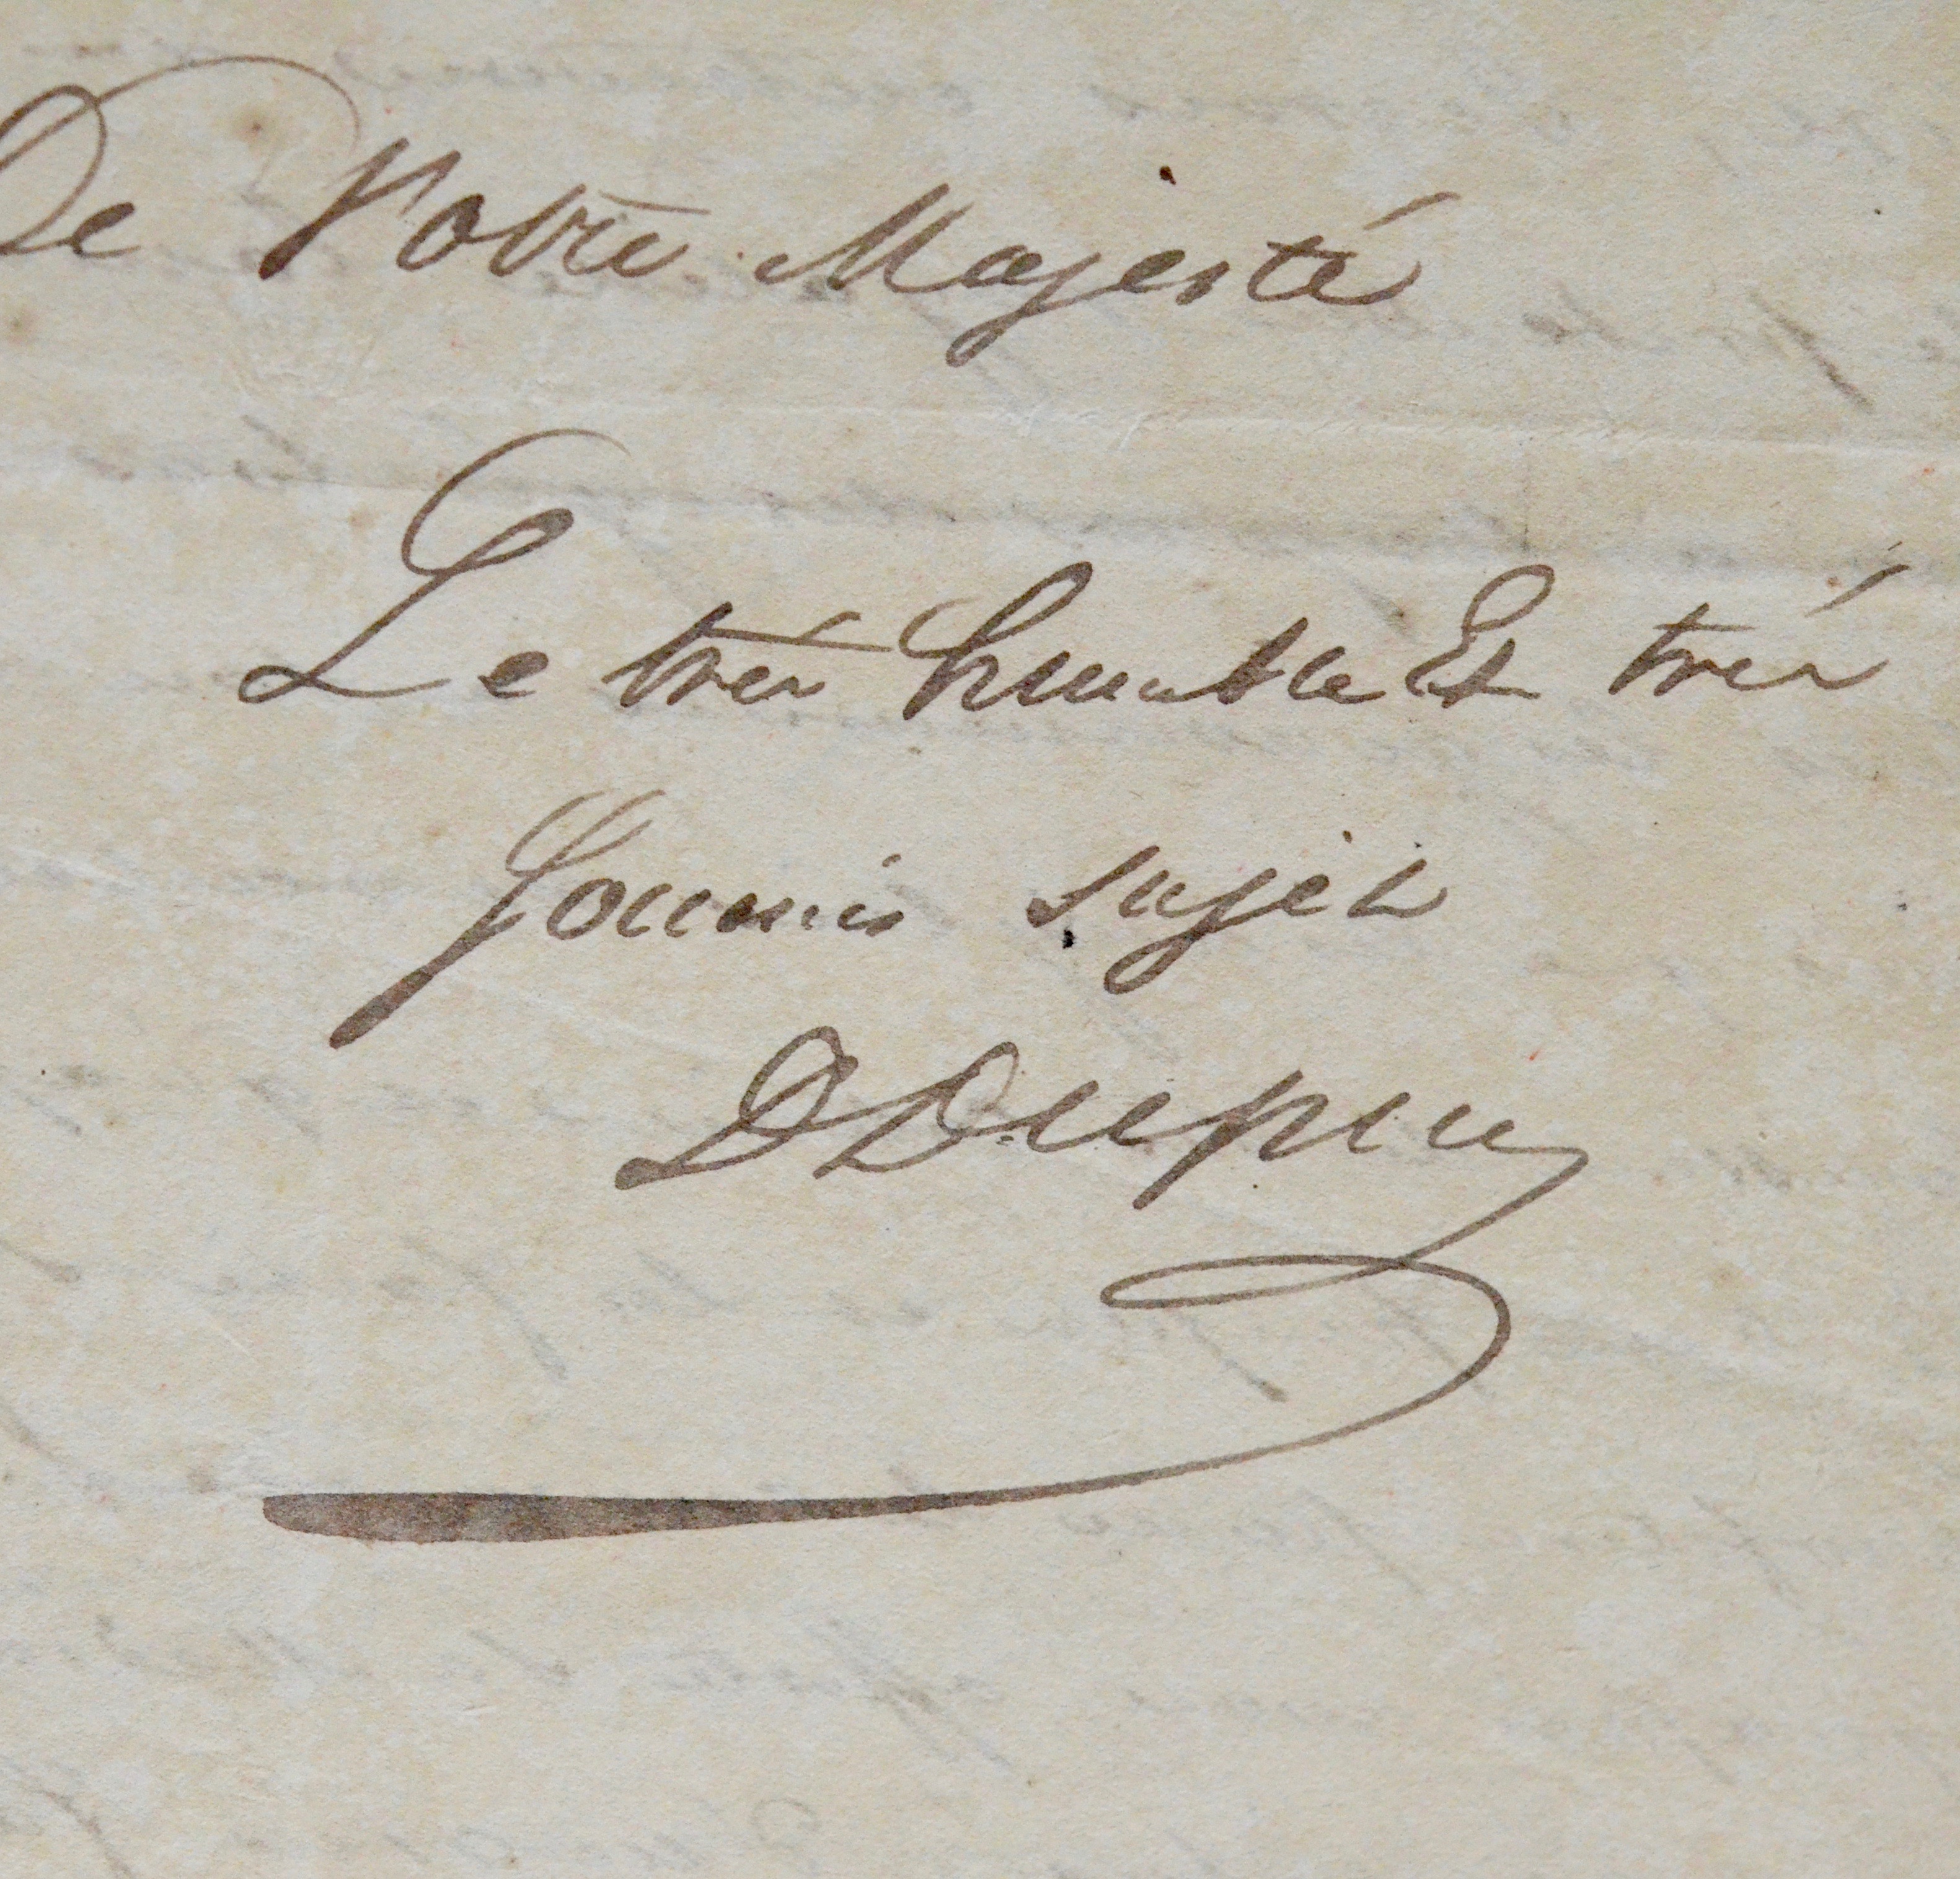 De Votre Majesté
Le très humble Et très
Soumis sujet
DDupuy